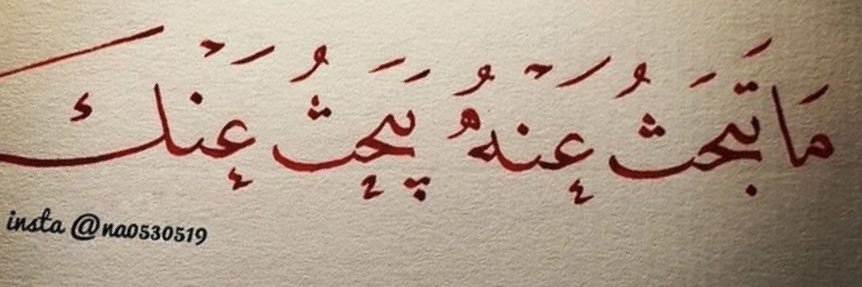 مَا تَبْحَثُ عَنْهُ يَبْحَثُ عَنْكَ
insta @na0530519